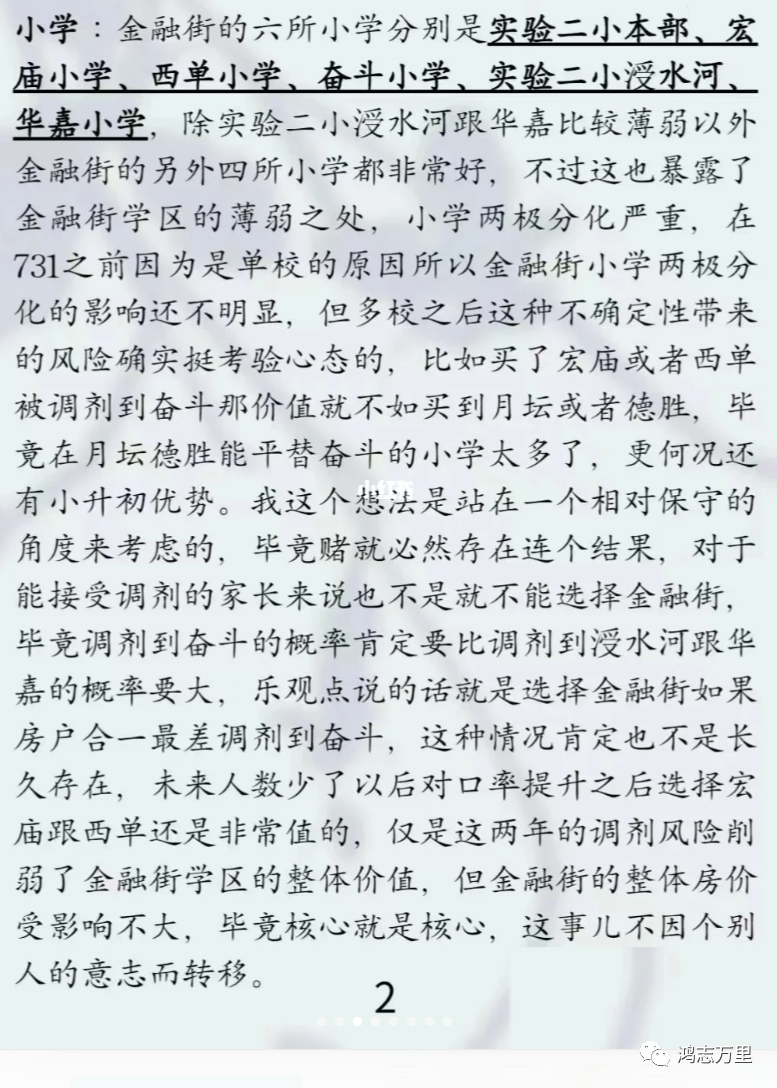 小学：金融街的六所小学分别是实验二小本部、宏
庙小学、西单小学、奋斗小学、实验二小涭水河、
华嘉小学，除实验二小涭水河跟华嘉比较薄弱以外
金融街的另外四所小学都非常好，不过这也暴露了
金融街学区的薄弱之处，小学两极分化严重，在
731之前因为是单校的原因所以金融街小学两极分
化的影响还不明显，但多校之后这种不确定性带来
的风险确实挺考验心态的，比如买了宏庙或者西单
被调剂到奋斗那价值就不如买到月坛或者德胜，毕
竟在月坛德胜能平替奋斗的小学太多了，更何况还
有小升初优势。我这个想法是站在一个相对保守的
角度来考虑的，毕竟赌就必然存在连个结果，对于
能接受调剂的家长来说也不是就不能选择金融街，
毕竟调剂到奋斗的概率肯定要比调剂到涭水河跟华
嘉的概率要大，乐观点说的话就是选择金融街如果
房户合一最差调剂到奋斗，这种情况肯定也不是长
久存在，未来人数少了以后对口率提升之后选择宏
庙跟西单还是非常值的，仅是这两年的调剂风险削
弱了金融街学区的整体价值，但金融街的整体房价
受影响不大，毕竟核心就是核心，这事儿不因个别
人的意志而转移。
小红书
2
鸿志万里